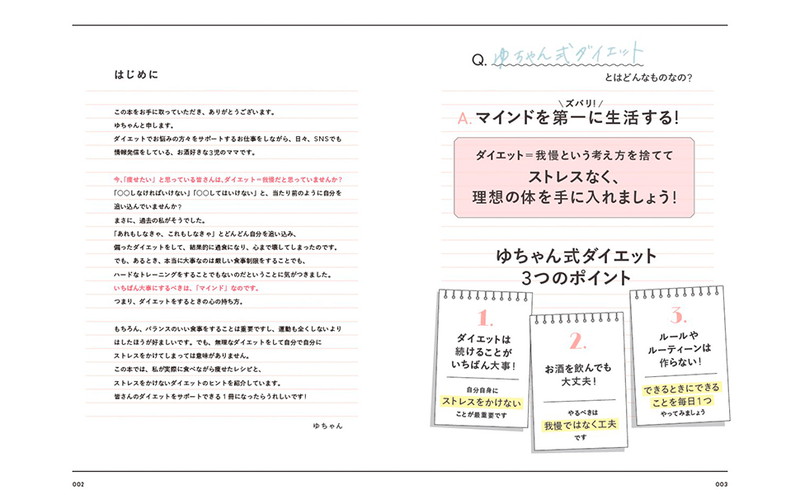 はじめに
この本をお手に取っていただき、ありがとうございます。
ゆちゃんと申します。
ダイエットでお悩みの方々をサポートするお仕事をしながら、日々、SNSでも
情報発信をしている、お酒好きな3児のママです。
今、「痩せたい」と思っている皆さんは、ダイエット=我慢だと思っていませんか?
「○○しなければいけない」「○○してはいけない」と、当たり前のように自分を
追い込んでいませんか?
まさに、過去の私がそうでした。
「あれもしなきゃ、これもしなきゃ」とどんどん自分を追い込み、
偏ったダイエットをして、結果的に過食になり、心まで壊してしまったのです。
でも、あるとき、本当に大事なのは厳しい食事制限をすることでも、
ハードなトレーニングをすることでもないのだということに気がつきました。
いちばん大事にするべきは、「マインド」なのです。
つまり、ダイエットをするときの心の持ち方。
もちろん、バランスのいい食事をすることは重要ですし、運動も全くしないより
はしたほうが好ましいです。でも、無理なダイエットをして自分で自分に
ストレスをかけてしまっては意味がありません。
この本では、私が実際に食べながら痩せたレシピと、
ストレスをかけないダイエットのヒントを紹介しています。
皆さんのダイエットをサポートできる1冊になったらうれしいです!
ゆちゃん
002
Q. ゆちゃん式ダイエット
とはどんなものなの?
\ズバリ!/
A. マインドを第一に生活する!
ダイエット=我慢という考え方を捨てて
ストレスなく、
理想の体を手に入れましょう!
ゆちゃん式ダイエット
3つのポイント
1.
ダイエットは
続けることが
いちばん大事!
自分自身に
ストレスをかけない
ことが最重要です
2.
お酒を飲んでも
大丈夫!
やるべきは
我慢ではなく工夫
です
3.
ルールや
ルーティーンは
作らない!
できるときにできる
ことを毎日1つ
やってみましょう
003